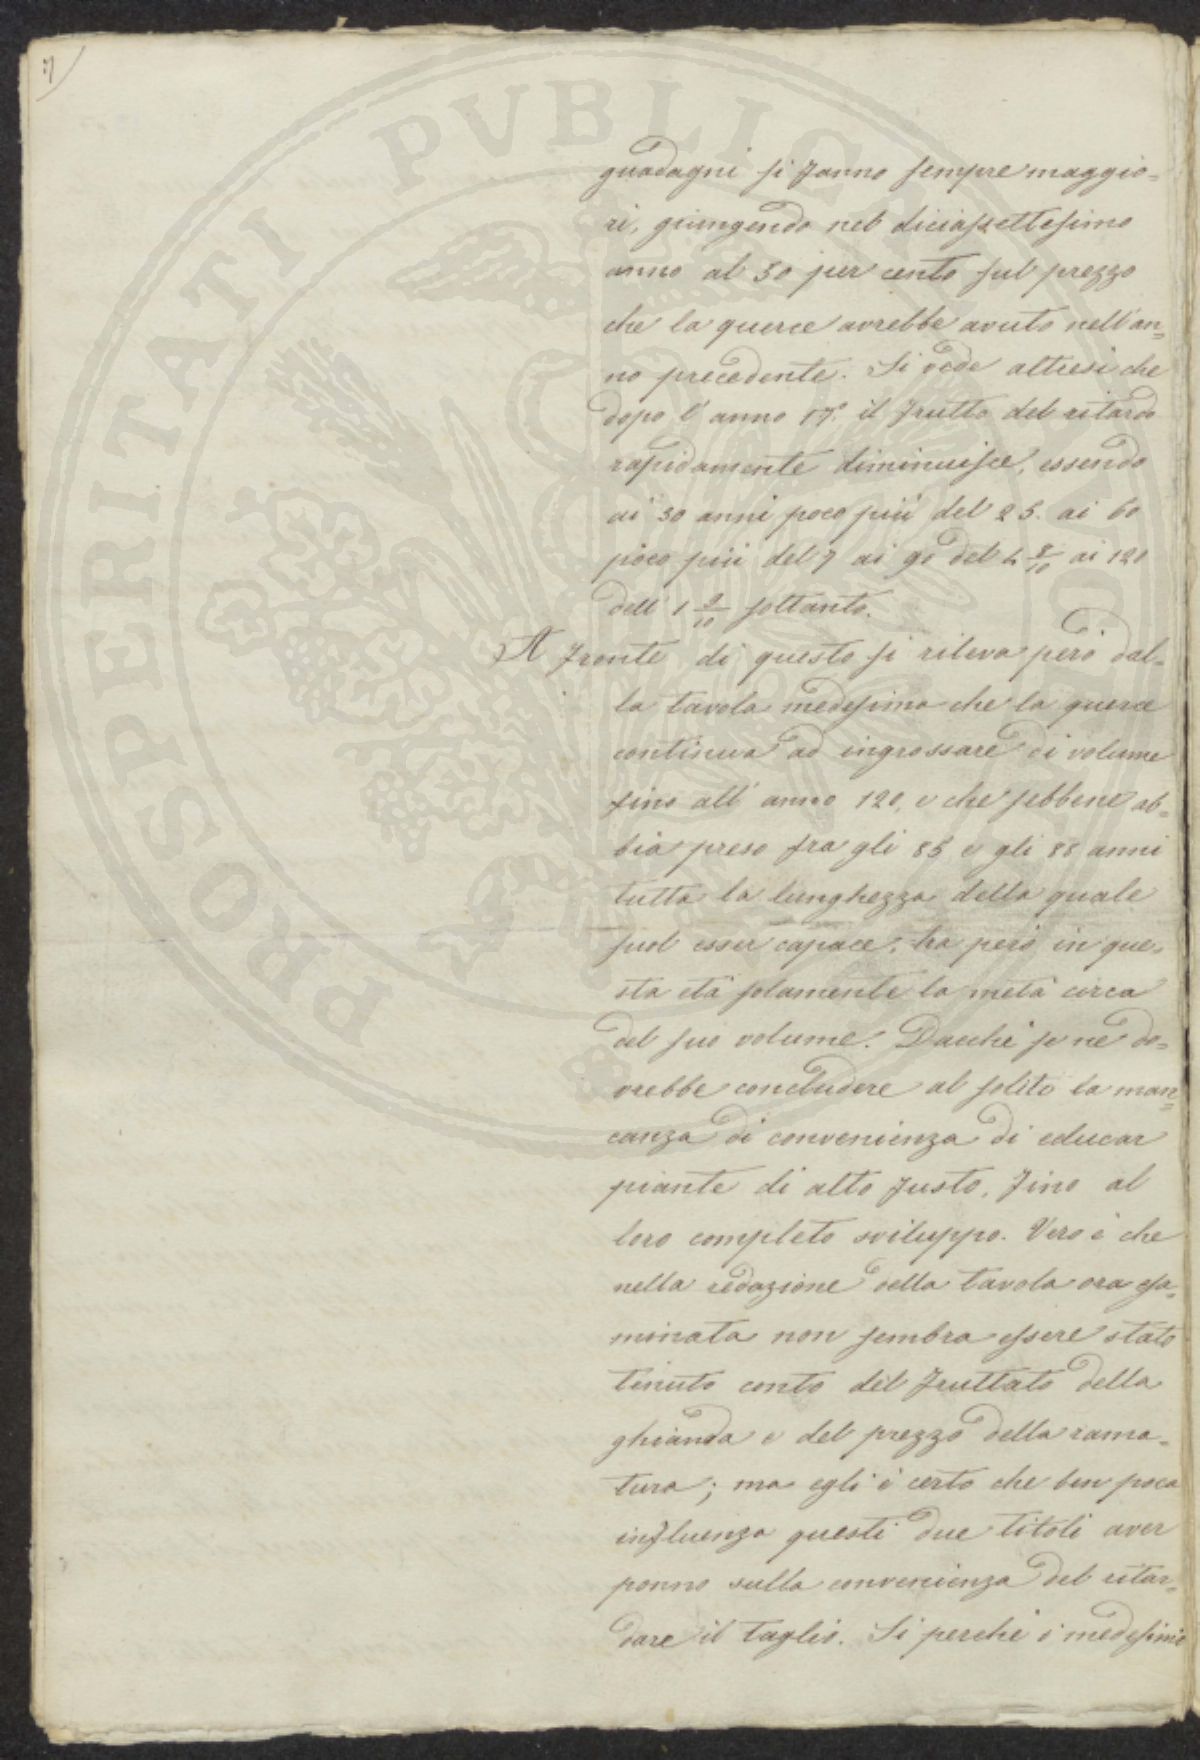 7
guadagni si fanno sempre maggio=
ri, giungendo nel diciassettesimo
anno al 50 per cento sul prezzo
che la querce avrebbe avuto nell'an=
no precedente. Si vede altresi che
dopo l'anno 17.° il frutto del ritardo
rapidamente diminuisce, essendo
ai 30 anni poco più del 25. ai 60
poco più del 7 ai 90 del 4 8/10 ai 120
dell' 1 9/10 soltanto.
A fronte di questo si rileva però dal=
la tavola medesima che la querce
continua ad ingrossare di volume
fino all' anno 120, e che sebbene ab=
bia preso fra gli 85 e gli 88 anni
tutta la lunghezza della quale
suol esser capace, ha però in que=
sta età solamente la metà circa
del suo volume. Dacchè se ne do=
vrebbe concludere al solito la man=
canza di convenienza di educar
piante di alto fusto, fino al
loro completo sviluppo. Vero è che
nella redazione della tavola ora esa=
minata non sembra essere stato
tenuto conto del fruttato della
ghianda e del prezzo della rama=
tura; ma egli è certo che ben poca
influenza questi due titoli aver
ponno sulla convenienza del ritar=
dare il taglio. Si perchè i medesimi
PROSPERITATI PVBLICAE